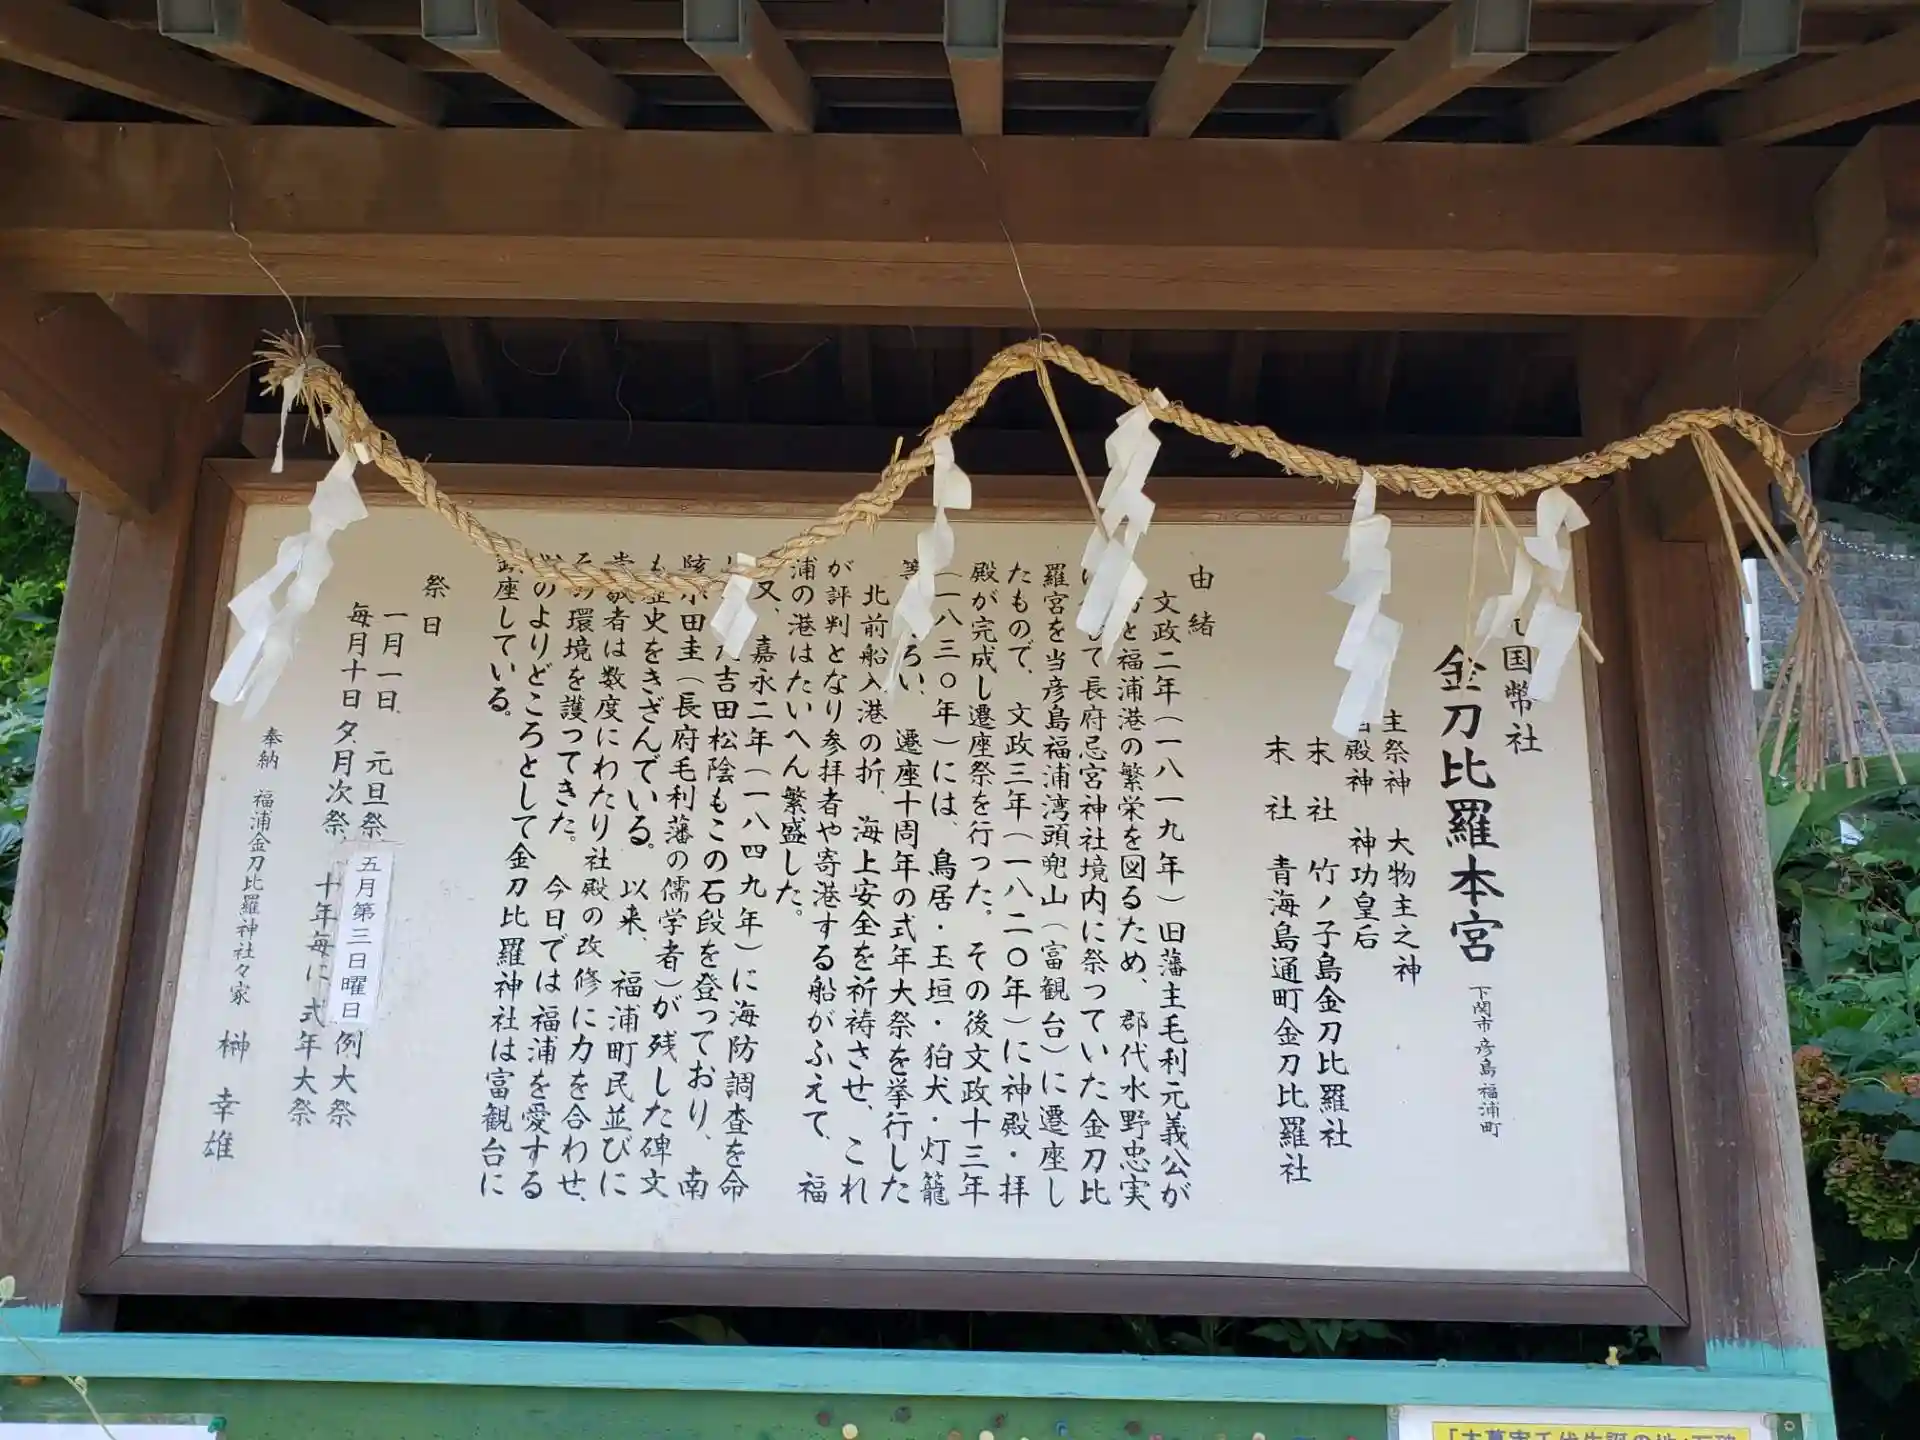 国幣社
金刀比羅本宮 下関市彦島福浦町
主祭神 大物主之神
殿神 神功皇后
末社 竹ノ子島金刀比羅社
末社 青海島通町金刀比羅社
由緒
文政二年(一八一九年)旧藩主毛利元義公が
と福浦港の繁栄を図るため、郡代水野忠実
て長府忌宮神社境内に祭っていた金刀比
羅宮を当彦島福浦湾頭兜山(富観台)に遷座し
たもので、文政三年(一八二〇年)に神殿・拝
殿が完成し遷座祭を行った。その後文政十三年
(一八三〇年)には、鳥居・玉垣・狛犬・灯籠
ろい、遷座十周年の式年大祭を挙行した
北前船入港の折、海上安全を祈祷させ、これ
が評判となり参拝者や寄港する船がふえて、福
浦の港はたいへん繁盛した。
又、嘉永二年(一八四九年)に海防調査を命
た吉田松陰もこの石段を登っており、南
小田圭(長府毛利藩の儒学者)が残した碑文
も歴史をきざんでいる。以来、福浦町民並びに
敬者は数度にわたり社殿の改修に力を合わせ、
の環境を護ってきた。今日では福浦を愛する
のよりどころとして金刀比羅神社は富観台に
鎮座している。
祭日
一月一日、元旦祭、五月第三日曜日例大祭
毎月十日夕月次祭、十年毎に式年大祭
奉納 福浦金刀比羅神社々家 榊 幸雄